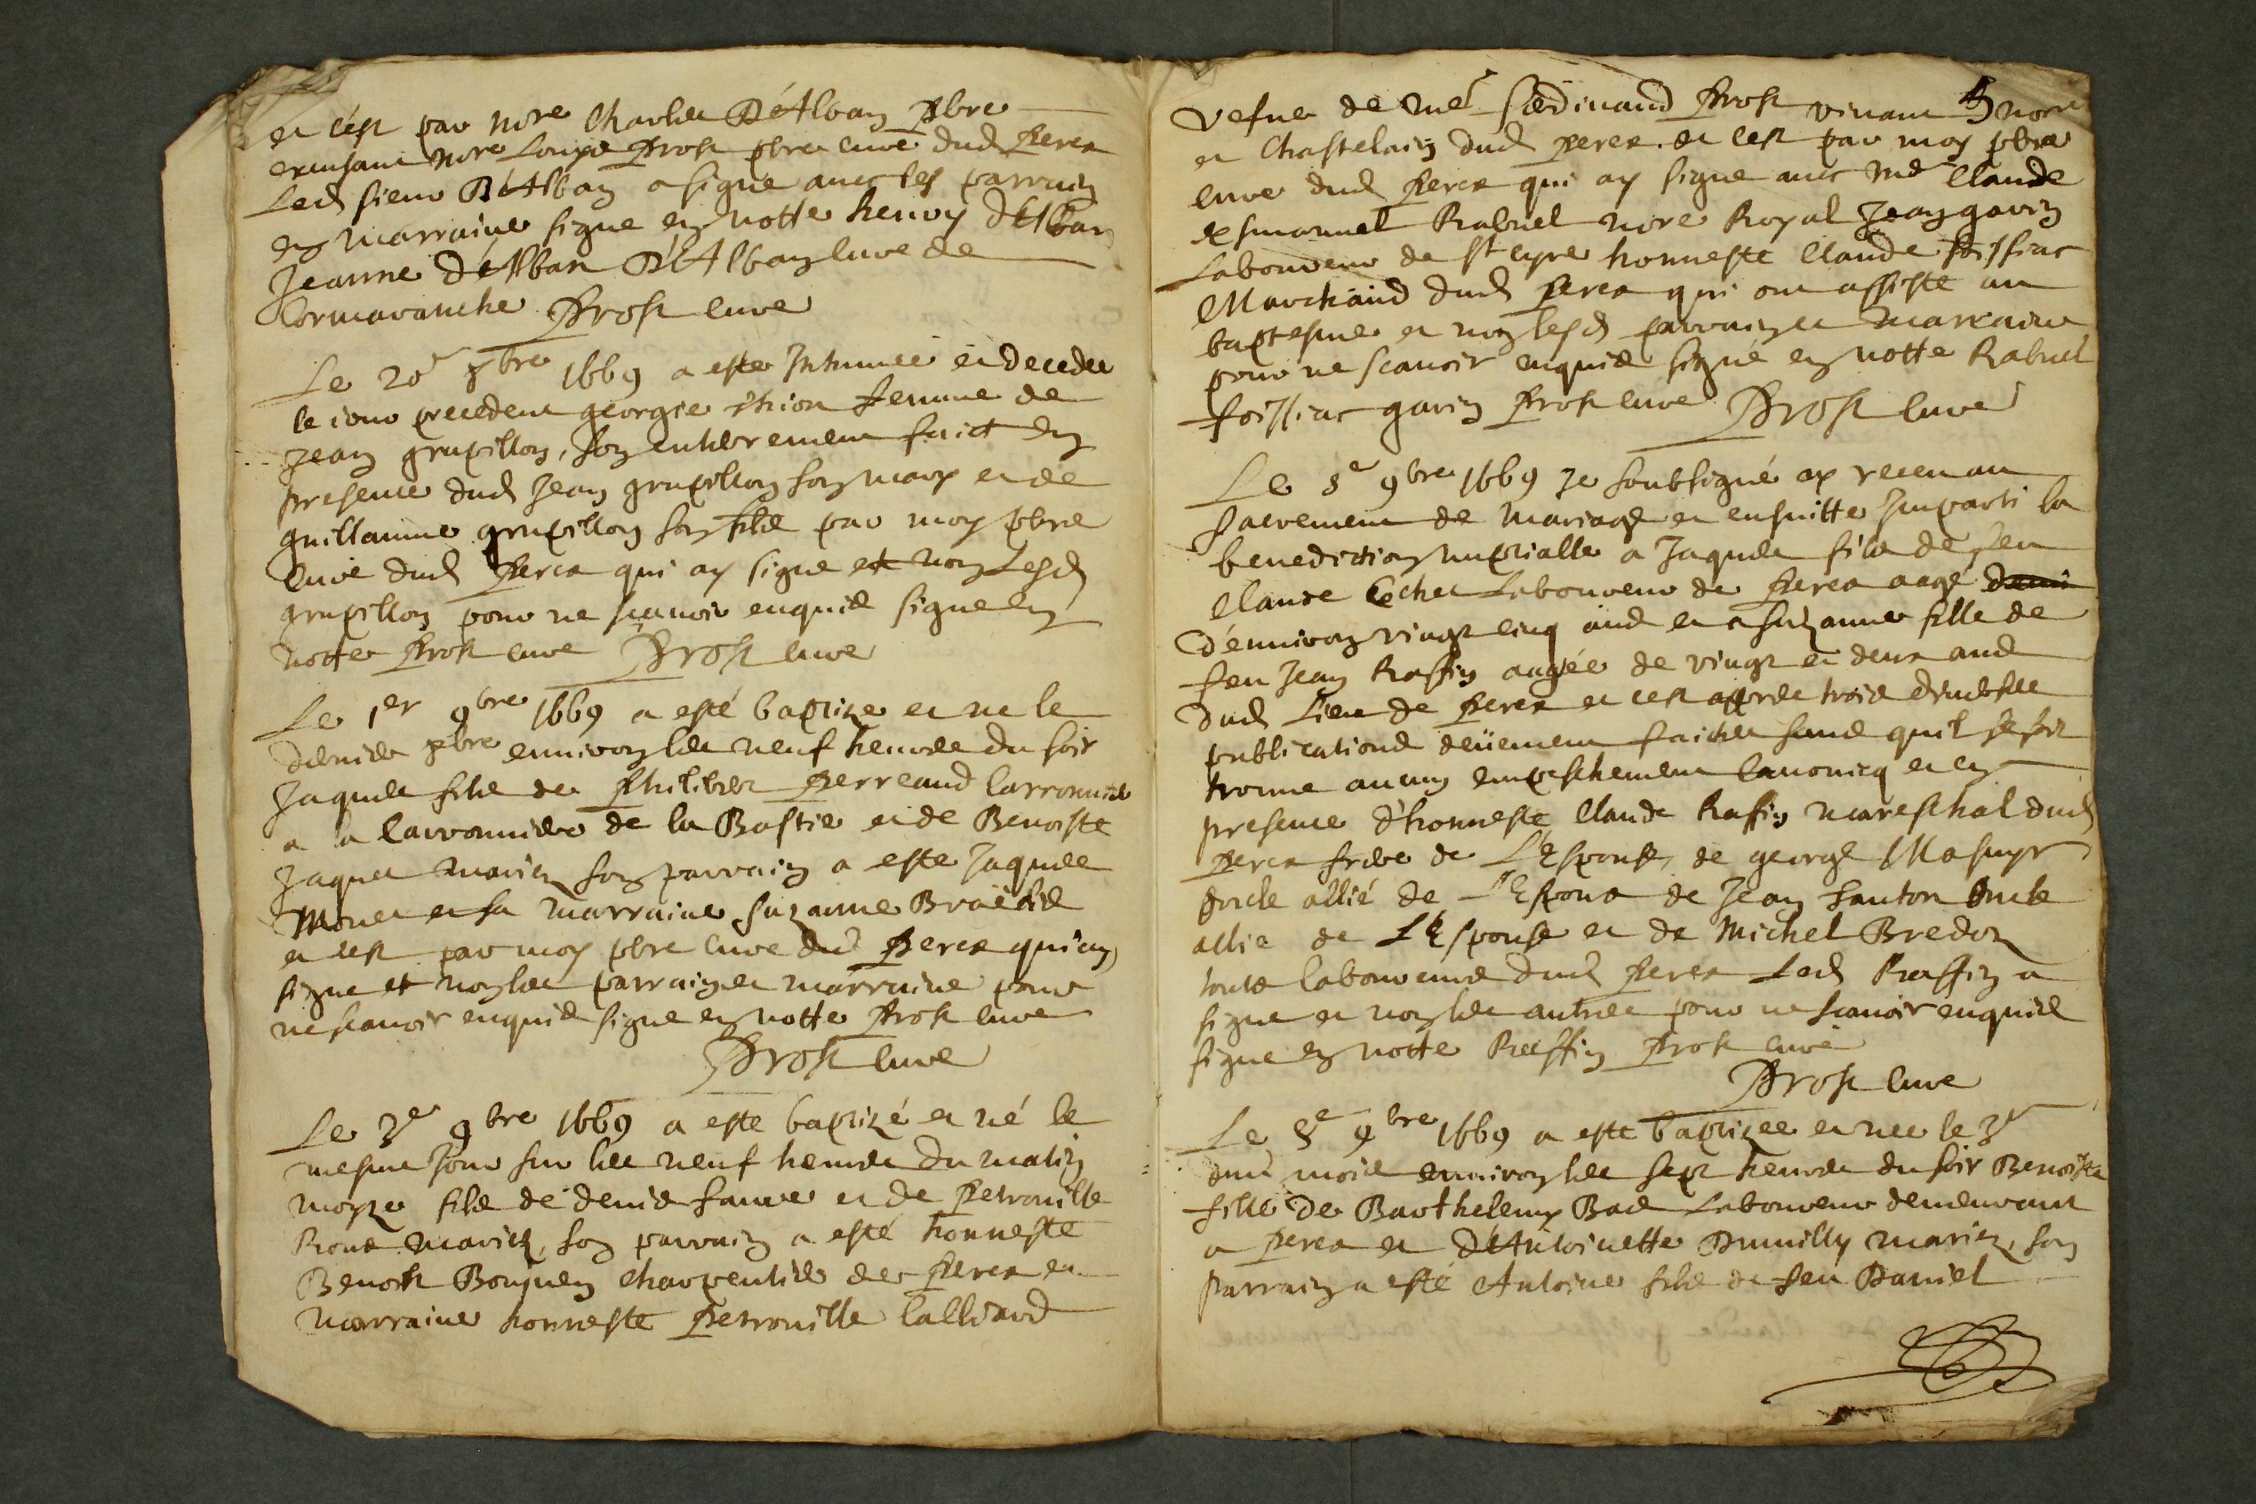 et c'est par mre Charles D'Alban pbre
excusant mre Louys Prost pbre curé dud Perex
Led sieur D'Alban a signé avec les parrain
et marraine signe en notte henry d'Alban
Jeanne d'Alban D'Alban curé de
Cormaranche Prost curé
Le 20e 8bre 1669 a este Inhumee et decedee
le iour precedent georgie femme de
Jean grupillon, son enterrement faict en
presence dud Jean grupillon son mary et de
guillaume grupillon son fils par moy pbre
curé dud Perex qui ay signe et non Lesd
grupillon pour ne scavoir enquis signe en
notte Prost curé Prost curé
Le 1er 9bre 1669 a esté baptize et ne le
dernier 8bre environ les neuf heures du soir
Jaques fils de Philibert Perreaud
a la de la Bastie et de Benoiste
Jaquet mariez son parrain a este Jaques
Monet et sa marraine Suzanne
et c'est par moy pbre curé dud Perex qui ay
signe et non les parrain et marraine pour
ne scavoir enquis signe en notte Prost curé
Prost curé
Le 3e 9bre 1669 a este baptizé et né le
mesme jour sur les neuf heures du matin
moyze fils de denis faure et de Petronille
Roux mariez, son parrain a esté honneste
Benoist Bouquin charpentier de Perex et
marraine honneste Petronille Calliard
5
vefve de me ferdinand Prost vivant nore
et Chastelain dud perex. et c'est par moy pbre
curé dud Perex qui ay signe avec me Claude
Esmanuel Rabuel nore Royal Jean gavin
Laboureur de st cyre honneste Claude foissiac
Marchand dud Perex qui ont assiste au
baptesme et non lesd parrain et marraine
pour ne scavoir enquis signé en notte Rabuel
foissiac gavin Prost curé Prost curé
Le 5e 9bre 1669 Je soubsigné ay receu au
sacrement de mariage et ensuitte Imparti la
benediction nuptialle a Jaques fils de feu
Claude Laboureur de Perex aagé
d'environ vingt cinq ans et a Suzanne fille de
feu Jean Raffin aagée de vingt et deux ans
dud Lieu de Perex et c'est apres trois
publications deüement faictes sans qu'il se soit
trouvé aucun empeschement canonicq et en
presence d'honneste Claude Raffin mareschal dud
Perex frere de L'Espouse, de george Masuyr
oncle allié de L'Espoux de Jean fauton oncle
allie de L'Espouse et de Michel Bredon
tous laboureurs dud Perex Led Raffin a
signe et non les autres pour ne scavoir enquis
signe en notte Raffin Prost curé
Prost curé
Le 5e 9bre 1669 a este baptizee et nee le 3e
dud mois environ les sept heures du soir Benoiste
fille de Barthelemy Bad Laboureur demeurant
a Perex et d'Antoinette Dumilly mariez, son
parrain a esté Antoine fils de feu Daniel